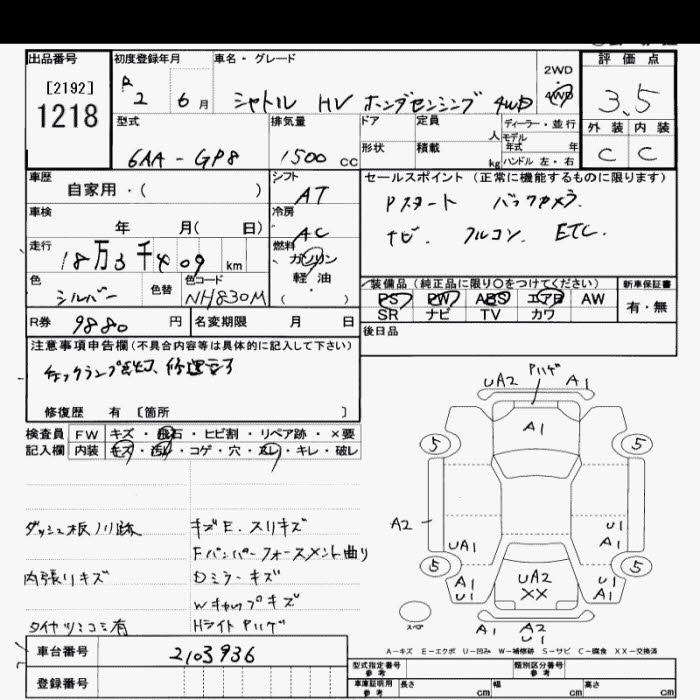 出品番号
[2192]
1218
初度登録年月
R 2 6 月
車名・グレード
シャトル HV ホンダセンシング 4WD
2WD
4WD
評価点
3.5
外装 内装
C C
型式
6AA-GP8
排気量
1500 cc
ドア 定員 人
形状 積載 kg
ディーラー・並行
モデル年式 年
ハンドル 左・右
車歴
自家用・( )
シフト
AT
車検 年 月( 日)
冷房
AC
走行
18万3千409 km
燃料
ガソリン
軽油
( ・ )
色
シルバー
色替
色コード
NH830M
R券 9880 円
名変期限 月 日
セールスポイント(正常に機能するものに限ります)
Pスタート バックカメラ
ナビ. フルコン. ETC.
装備品(純正品に限り○をつけてください)
PS PW ABS エアB AW
SR ナビ TV カワ
新車保証書
有・無
後日品
注意事項申告欄(不具合内容等は具体的に記入して下さい)
修復歴 有 [箇所 ]
検査員記入欄
FW キズ・飛石・ヒビ割・リペア跡・×要
内装 キズ・汚れ・コゲ・穴・スレ・キレ・破レ
ダッシュ板ノリ跡
内張リキズ
タイヤツミコミ有
キズE. スリキズ
Fバンパーフォースメント曲り
Dミラーキズ
Wキャップキズ
Hライト Pハゲ
UA2 Pハゲ A1
A1
5 5
A2
UA1
U1
A1
5 5
A1
U1
UA2
XX
U1
A1
スペア
A1 A2
U1
A-キズ E-エクボ U-凹み W-補修跡 S-サビ C-腐食 XX-交換済
車台番号 2103936
登録番号
型式指定番号 参考
類別区分番号 参考
車庫証明用 参考 長さ cm 幅 cm 高さ cm